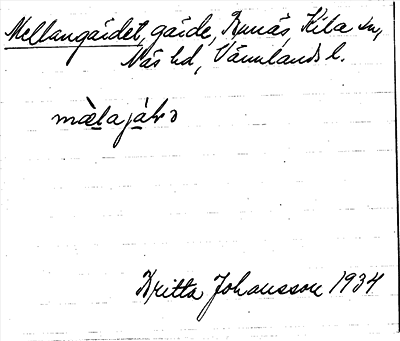 Mellangärdet, gärde, Runäs, Kila sn,
Näs hd, Värmlands l.
mæ̀lajáḷɔ
Britta Johansson 1934